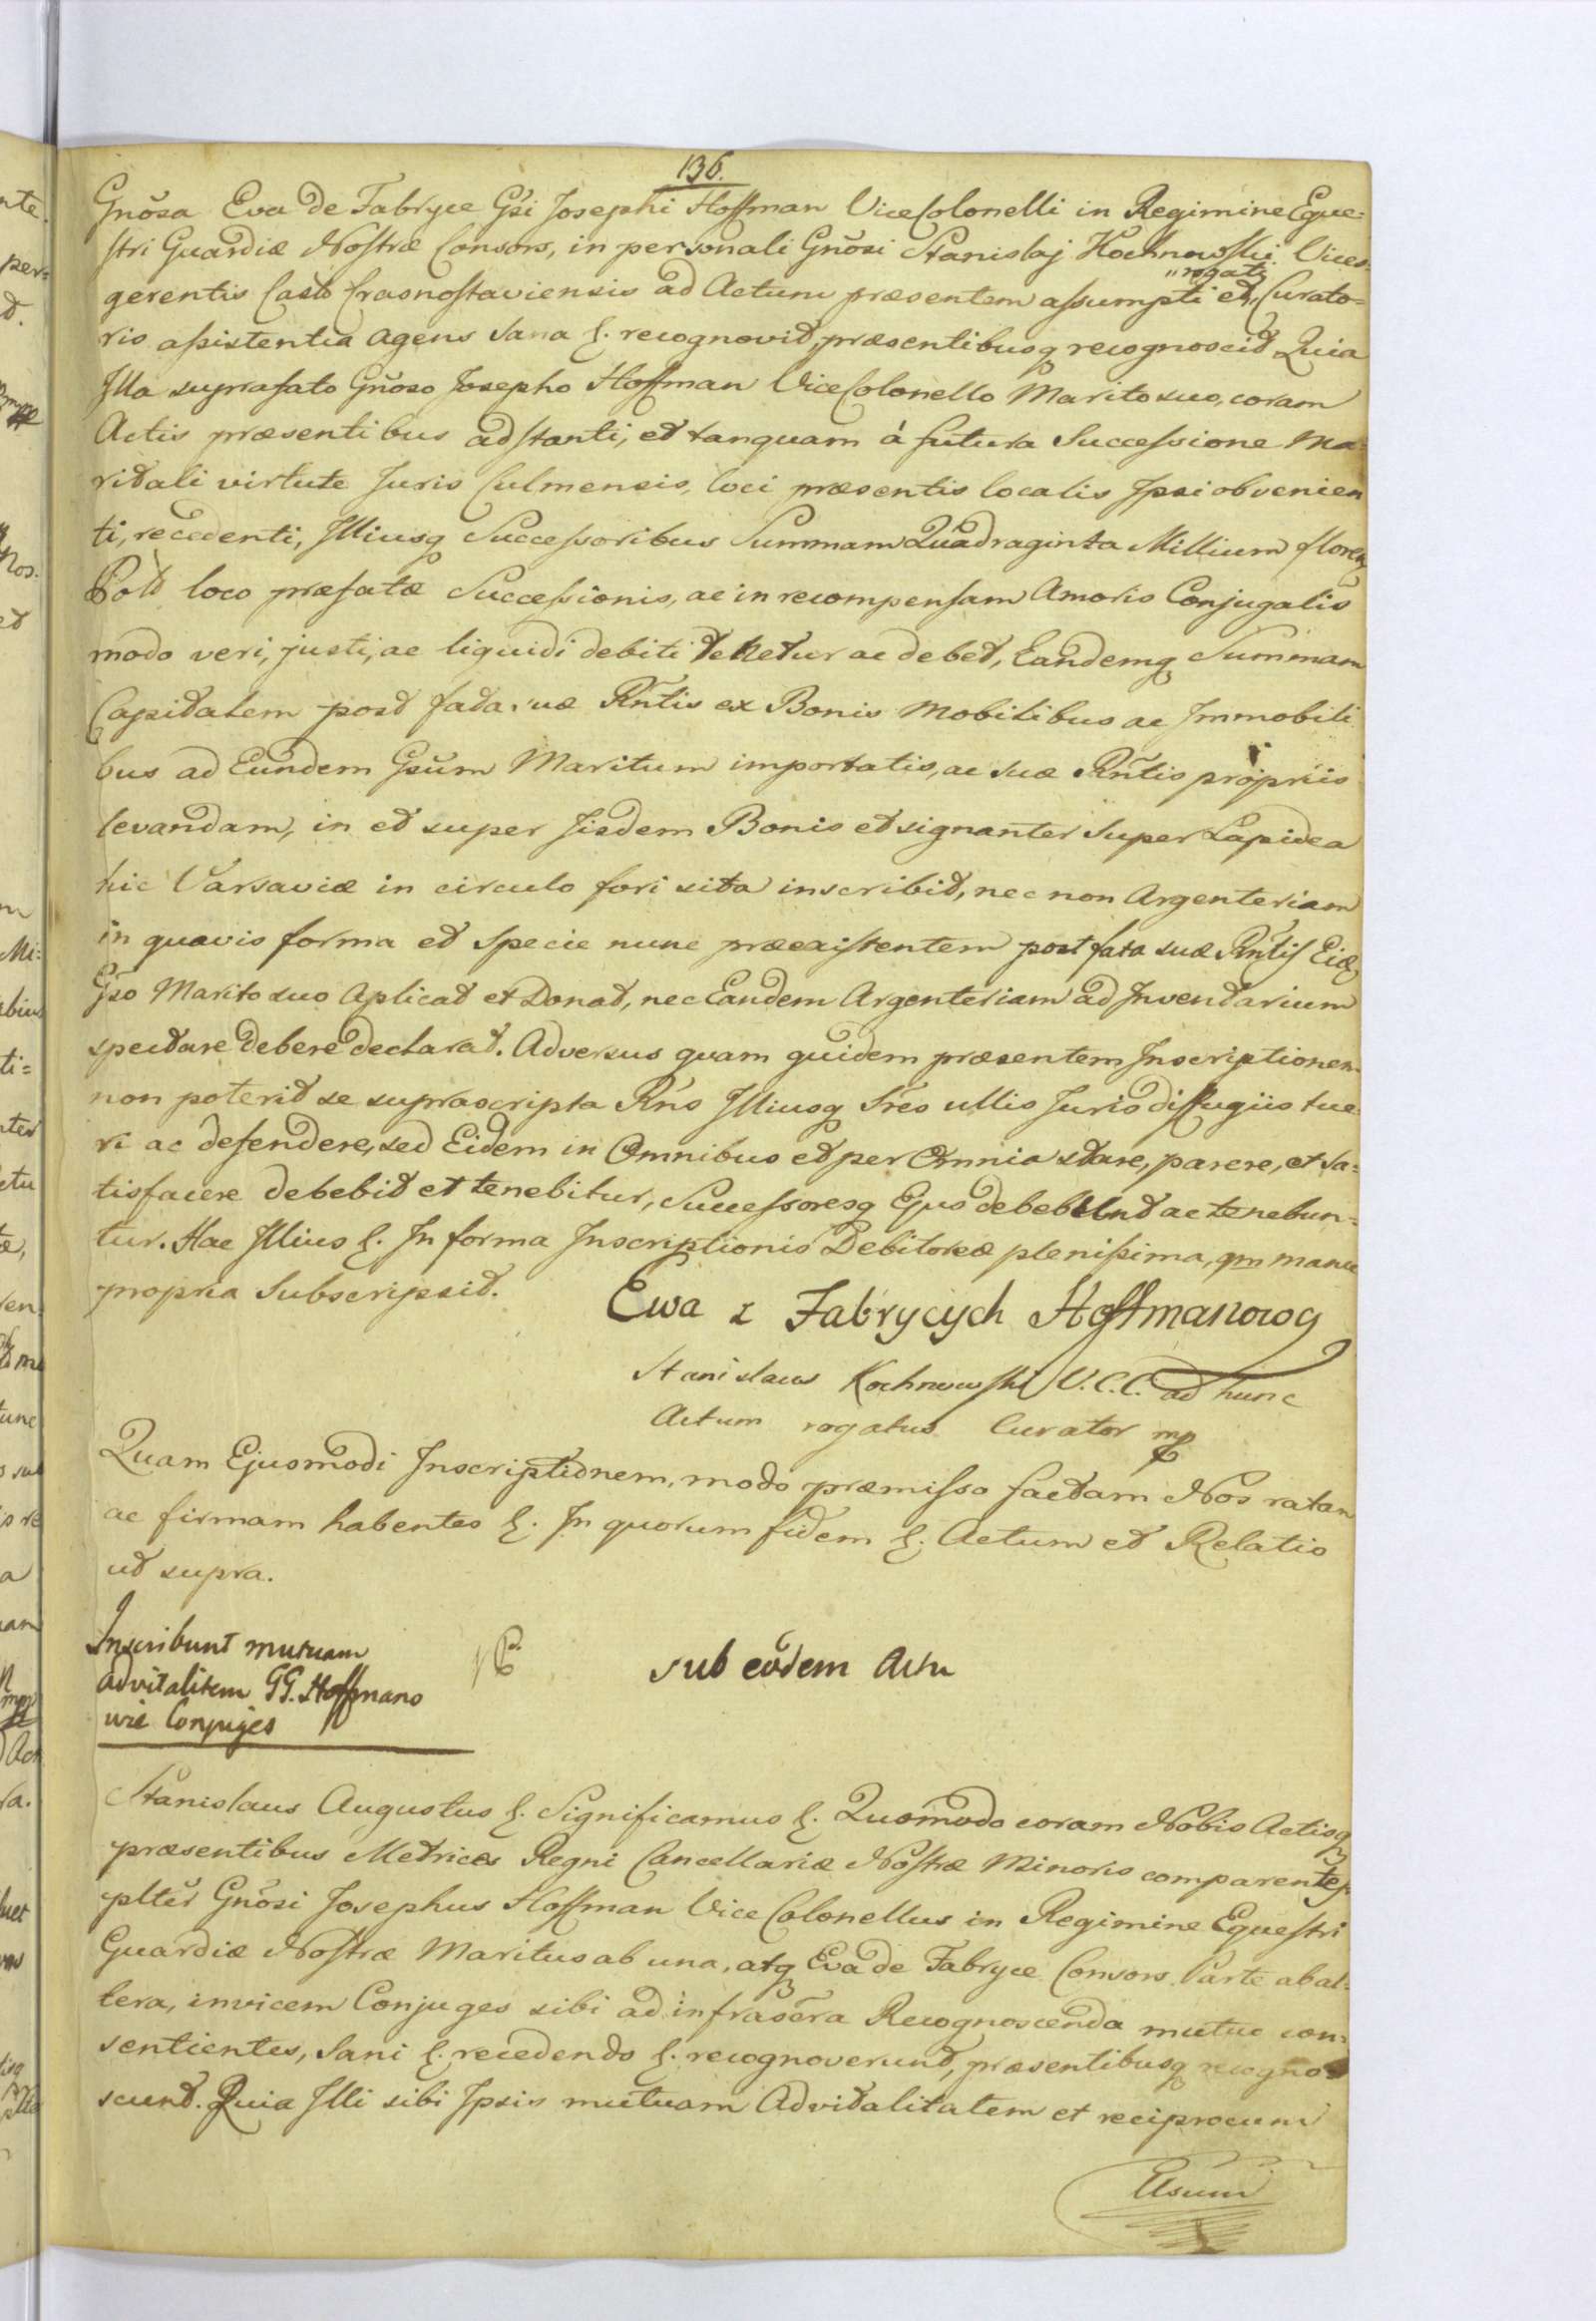 136.
Gnõsa Eva de Fabryce Gsi Josephi Hoffman ViceColonelli in Regimine Eque=
stri Guardiæ Nostræ Consors, in personali Gnõsi Stanislaj Kochnowski Vices=
gerentis Castr Crasnostaviensis ad Actum præsentem assumpti et „rogati„ Curato=
ris assistentia agens Sana &. recognovit, præsentibusq recognoscit Quia
Illa suprafato Gnõso Josepho Hoffman ViceColonello Marito suo, coram
Actis præsentibus adstanti, et tanquam à futura Successione Ma=
ritali virtute Juris Culmensis, loci præsentis localis Ipsi obvenien
ti, recedenti, Illiusq Successoribus Summam Quadraginta Millium floren
Polł loco præfatæ Successionis, ac in recompensam Amoris Conjugalis
modo veri, justi, ac liquidi debiti tenetur ac debet, Eandemq Summam
Capitalem post fata suæ Rñtis ex Bonis Mobilibus ac Immobili
bus ad Eundem Gsũm Maritum importatis, ac suæ Rñtis propriis
levandam, in et super Jisdem Bonis et signanter Super Lapidea
hic Varsaviæ in circulo fori sita inscribit, nec non Argenteriam
in quavis forma et Specie nunc præexistentem post fata suæ Rñtis Eid
Gso Marito suo Aplicat et Donat, nec Eandem Argenteriam ad Inventarium
spectare debere declarat. Adversus quam quidem præsentem Inscriptionem
non poterit se suprascripta Rñs Illiusq Sres ullis Juris diffugiis tue=
ri ac defendere, sed Eidem in Omnibus et per Omnia stare, parere, et sa=
tisfacere debebit et tenebitur, Successoresq Ejus debebunt ac tenebun=
tur. Hac Illius &. In forma Inscriptionis Debitoreæ plenissima, qm manu
propria Subscripsit.
Ewa z Fabrycych Hoffmanowa
Stanislaus Kochnowski V.C.C. ad hunc
Actum rogatus Curator mp
Quam Ejusmodi Inscriptionem, modo præmisso factam Nos ratam
ac firmam habentes &. In quorum fidem &. Actum et Relatio
ut supra.
Inscribunt mutuam
advitalitem GG. Hoffmano
wie Conjuges
sub eodem Actu
Stanislaus Augustus &. Significamus &. Quomodo coram Nobis Actisq
præsentibus Metrices Regni Cancellariæ Nostræ Minoris comparentes
plter Gnõsi Josephus Hoffman Vice Colonellus in Regimine Equestri
Guardiæ Nostræ Maritus ab una, atq Eva de Fabryce Consors Parte ab al=
tera, invicem Conjuges sibi ad infrascra Recognoscenda mutuo con=
sentientes, Sani &. recedendo &. recognoverunt, præsentibusq recogno=
scunt. Quia Illi sibi Ipsis mutuam Advitalitatem et reciprocum
Usum